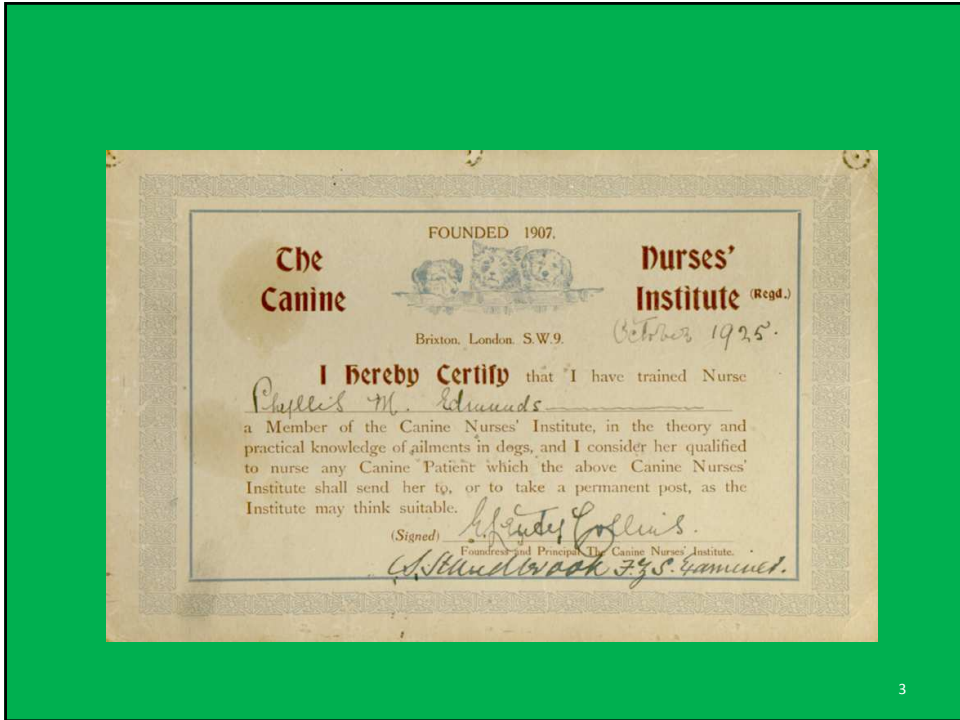 FOUNDED 1907.
The Canine Nurses' Institute (Regd.)
Brixton, London. S.W.9.
October 1925.
I Hereby Certify that I have trained Nurse
Phyllis M. Edmunds
a Member of the Canine Nurses' Institute, in the theory and
practical knowledge of ailments in dogs, and I consider her qualified
to nurse any Canine Patient which the above Canine Nurses'
Institute shall send her to, or to take a permanent post, as the
Institute may think suitable.
(Signed) Collins.
Foundress and Principal The Canine Nurses' Institute.
Standbrook F.Z.S. Examiner.
3